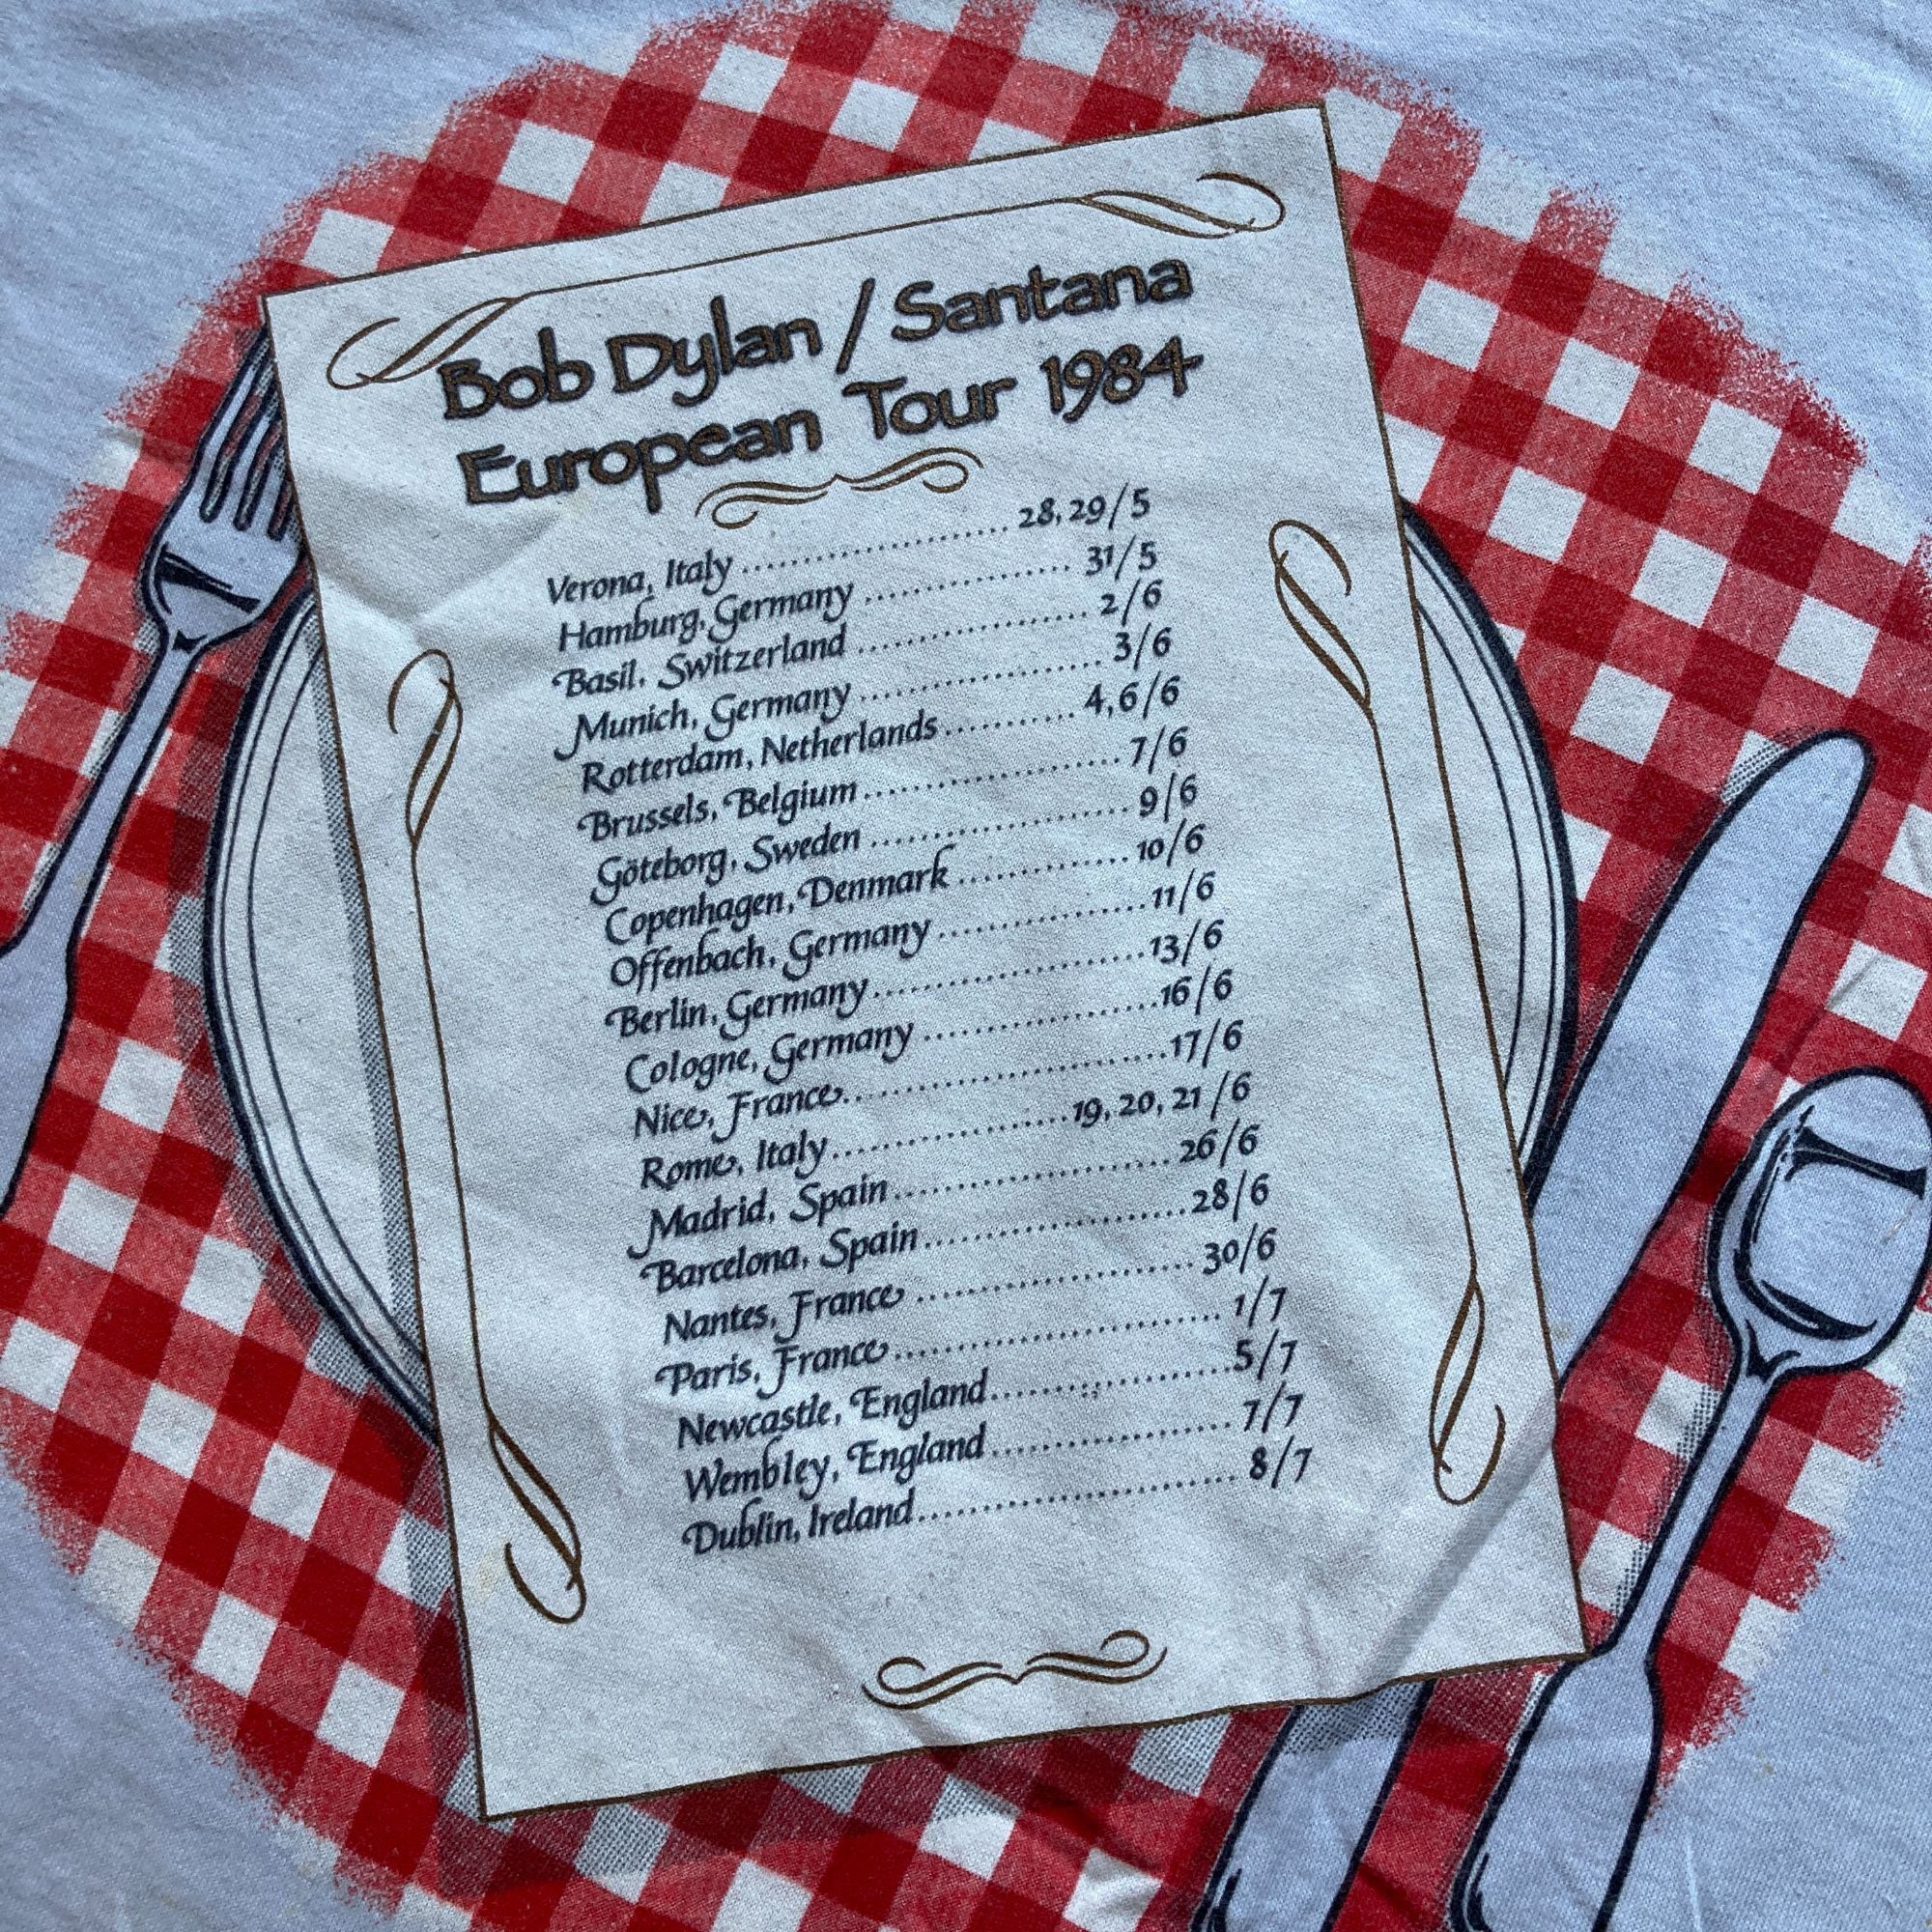 Bob Dylan / Santana
European Tour 1984
Verona, Italy .......................... 28, 29/5
Hamburg, Germany .................... 31/5
Basil, Switzerland ...................... 2/6
Munich, Germany ....................... 3/6
Rotterdam, Netherlands ............ 4, 6/6
Brussels, Belgium ........................ 7/6
Göteborg, Sweden ........................ 9/6
Copenhagen, Denmark ................ 10/6
Offenbach, Germany .................... 11/6
Berlin, Germany .......................... 13/6
Cologne, Germany ....................... 16/6
Nice, France ............................... 17/6
Rome, Italy ...................... 19, 20, 21/6
Madrid, Spain ............................ 26/6
Barcelona, Spain ......................... 28/6
Nantes, France ........................... 30/6
Paris, France ............................... 1/7
Newcastle, England ...................... 5/7
Wembley, England ....................... 7/7
Dublin, Ireland ............................ 8/7